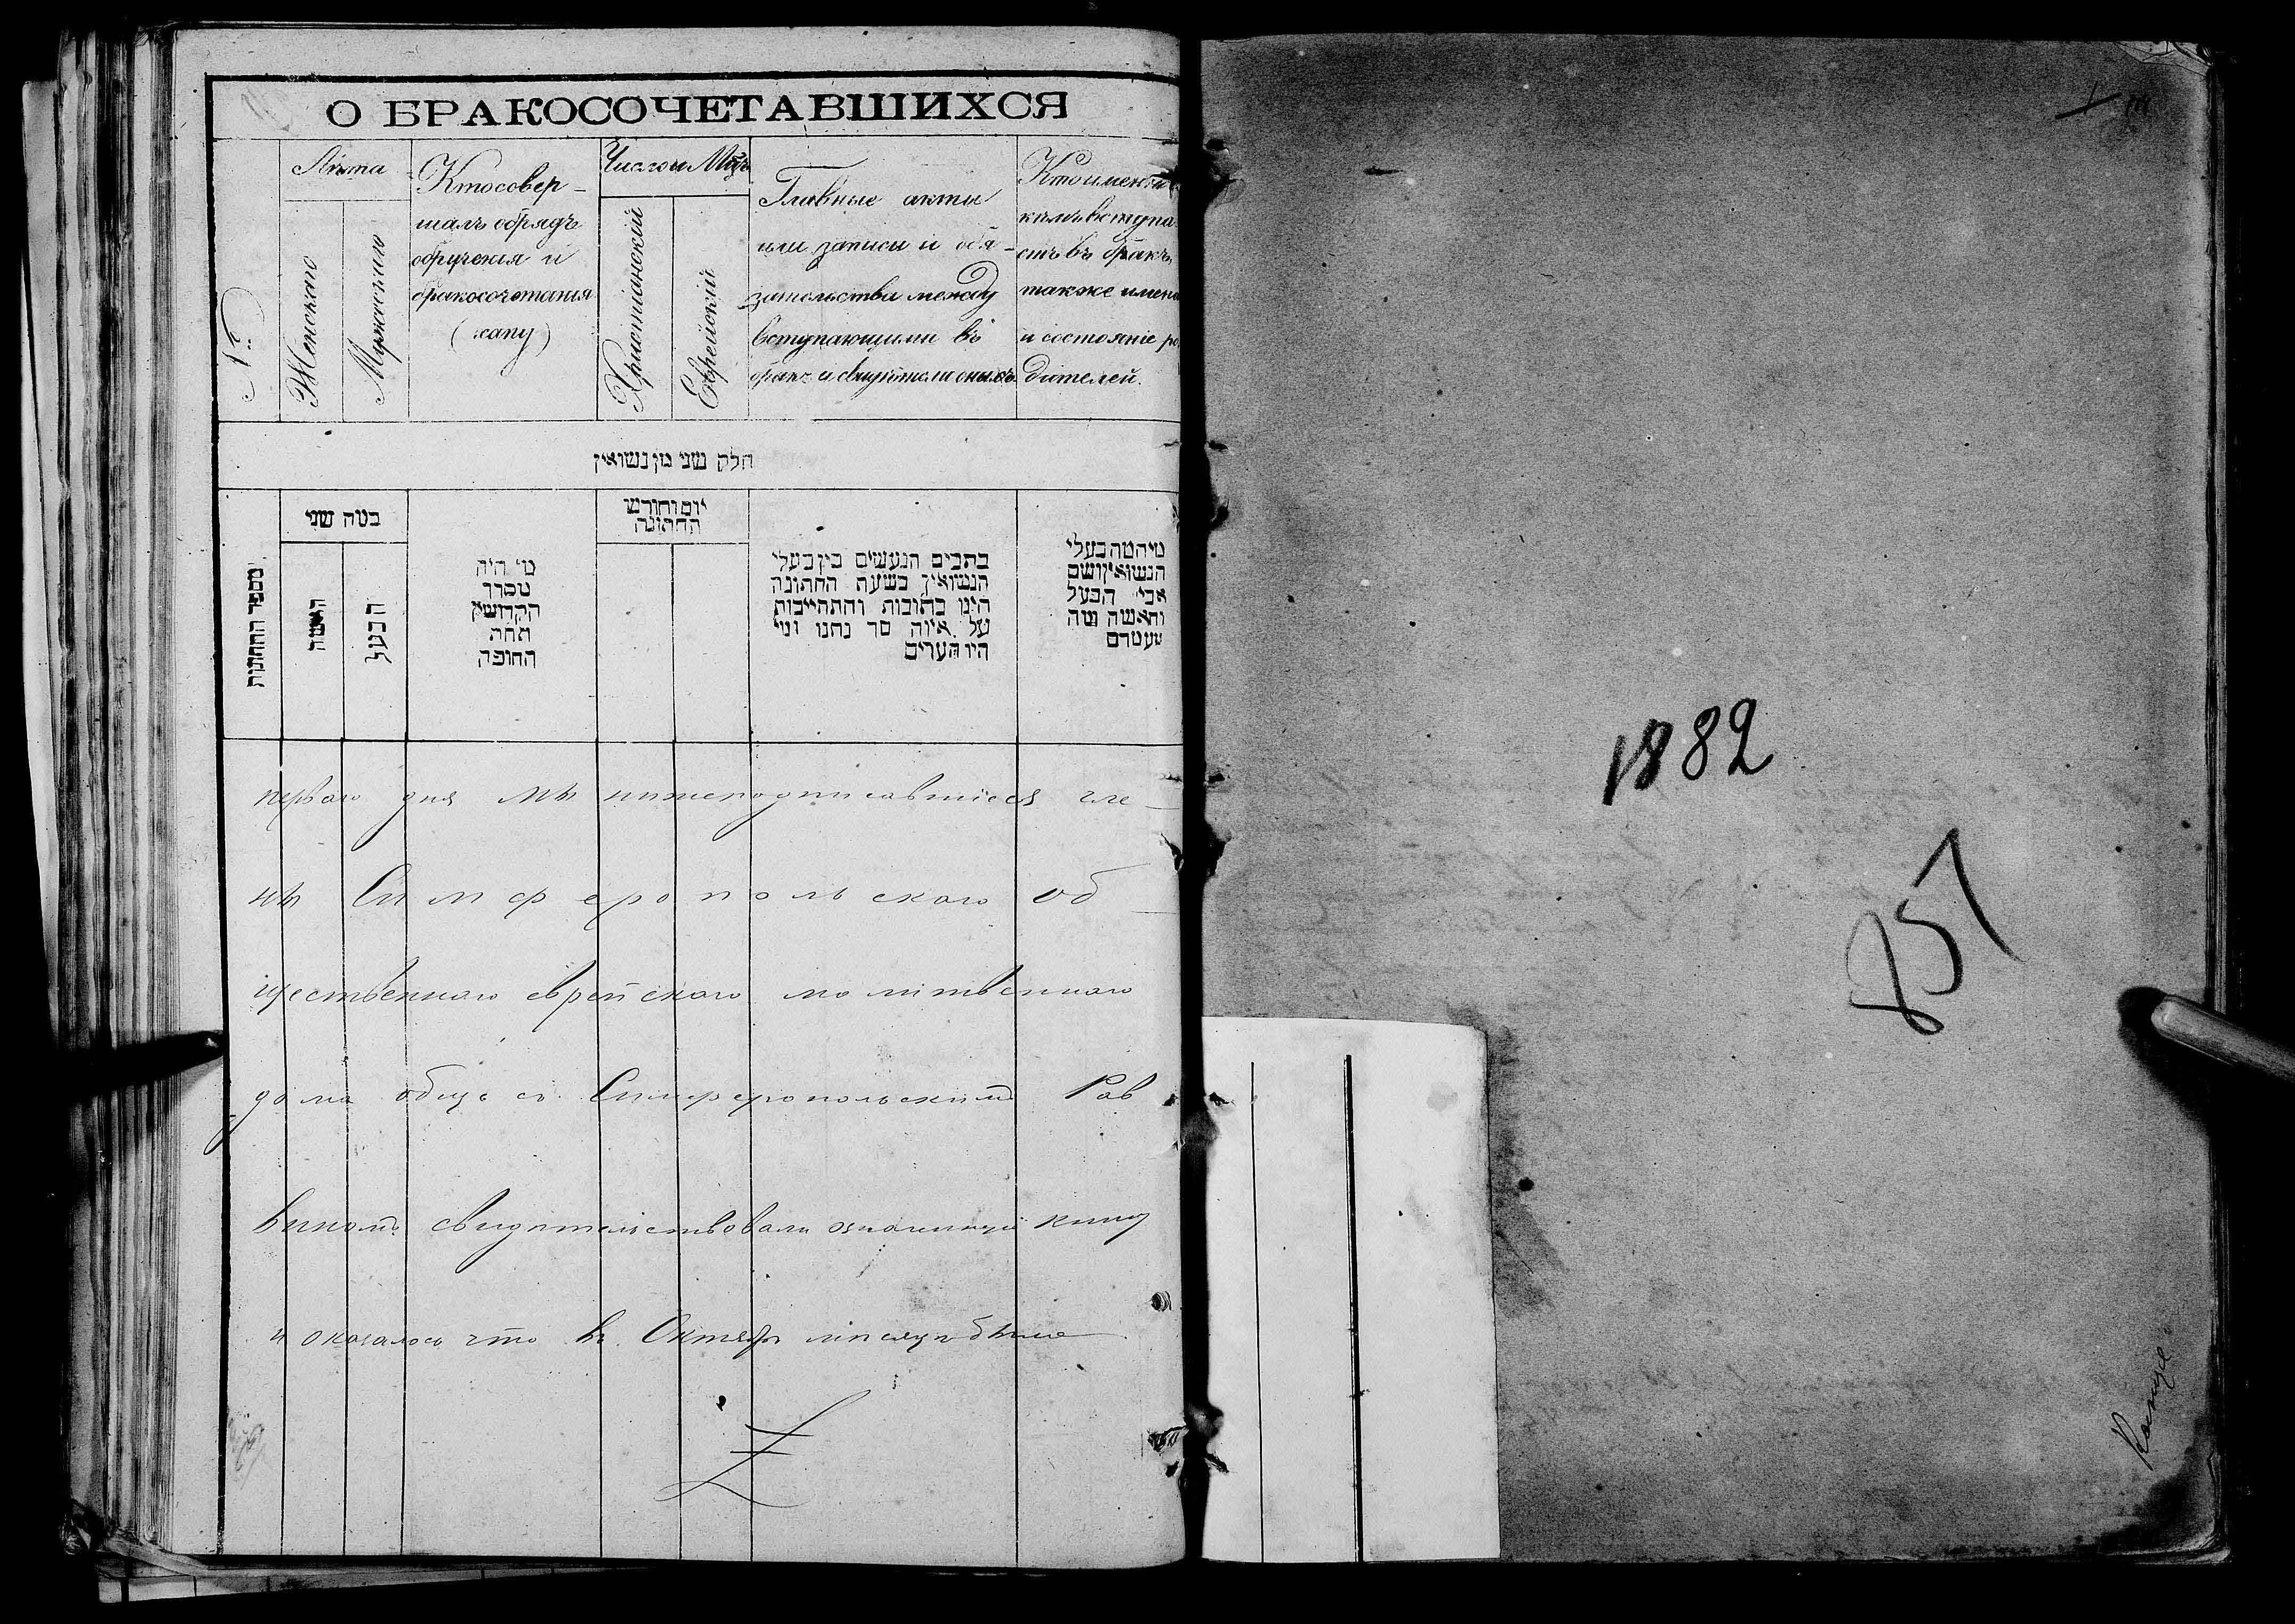 О БРАКОСОЧЕТАВШИХСЯ
№
Лѣта
Женскаго
Мужескаго
Кто совер-
шалъ обрядъ
обрученія и
бракосочетанія
(хапу)
Число и Мѣцъ
Христіанскій
Еврейскій
Главные акты
или записи и обя-
зательства между
вступающими въ
бракъ и свидѣтели оныхъ
Кто именно
кѣмъ вступа-
етъ въ бракъ,
также имена
и состояніе ро
дителей.
חלק שני מן נשואין
מספר החתונות
במה שני
האשה
הבעל
מי היה
מסדר
הקדושין
תחת
החופה
יום וחודש
החתונה
כתבים הנעשים בין בעלי
הנשואין בשעת החתונה
היינו כתובות והתחייבות
על איזה סך נתנו ומי
היו העדים
מיהמה בעלי
הנשואין ושם
אבי הבעל
והאשה ומה
מעמדם
перваго дня мы нижеподписавшіеся чле-
ны Симферопольскаго об-
щественнаго еврейскаго молитвеннаго
дома обще съ Симферопольскимъ Рав
виномъ свидѣтельствовали означенную книгу
и оказалось что въ Октябрѣ мѣсяцѣ было
1882
857